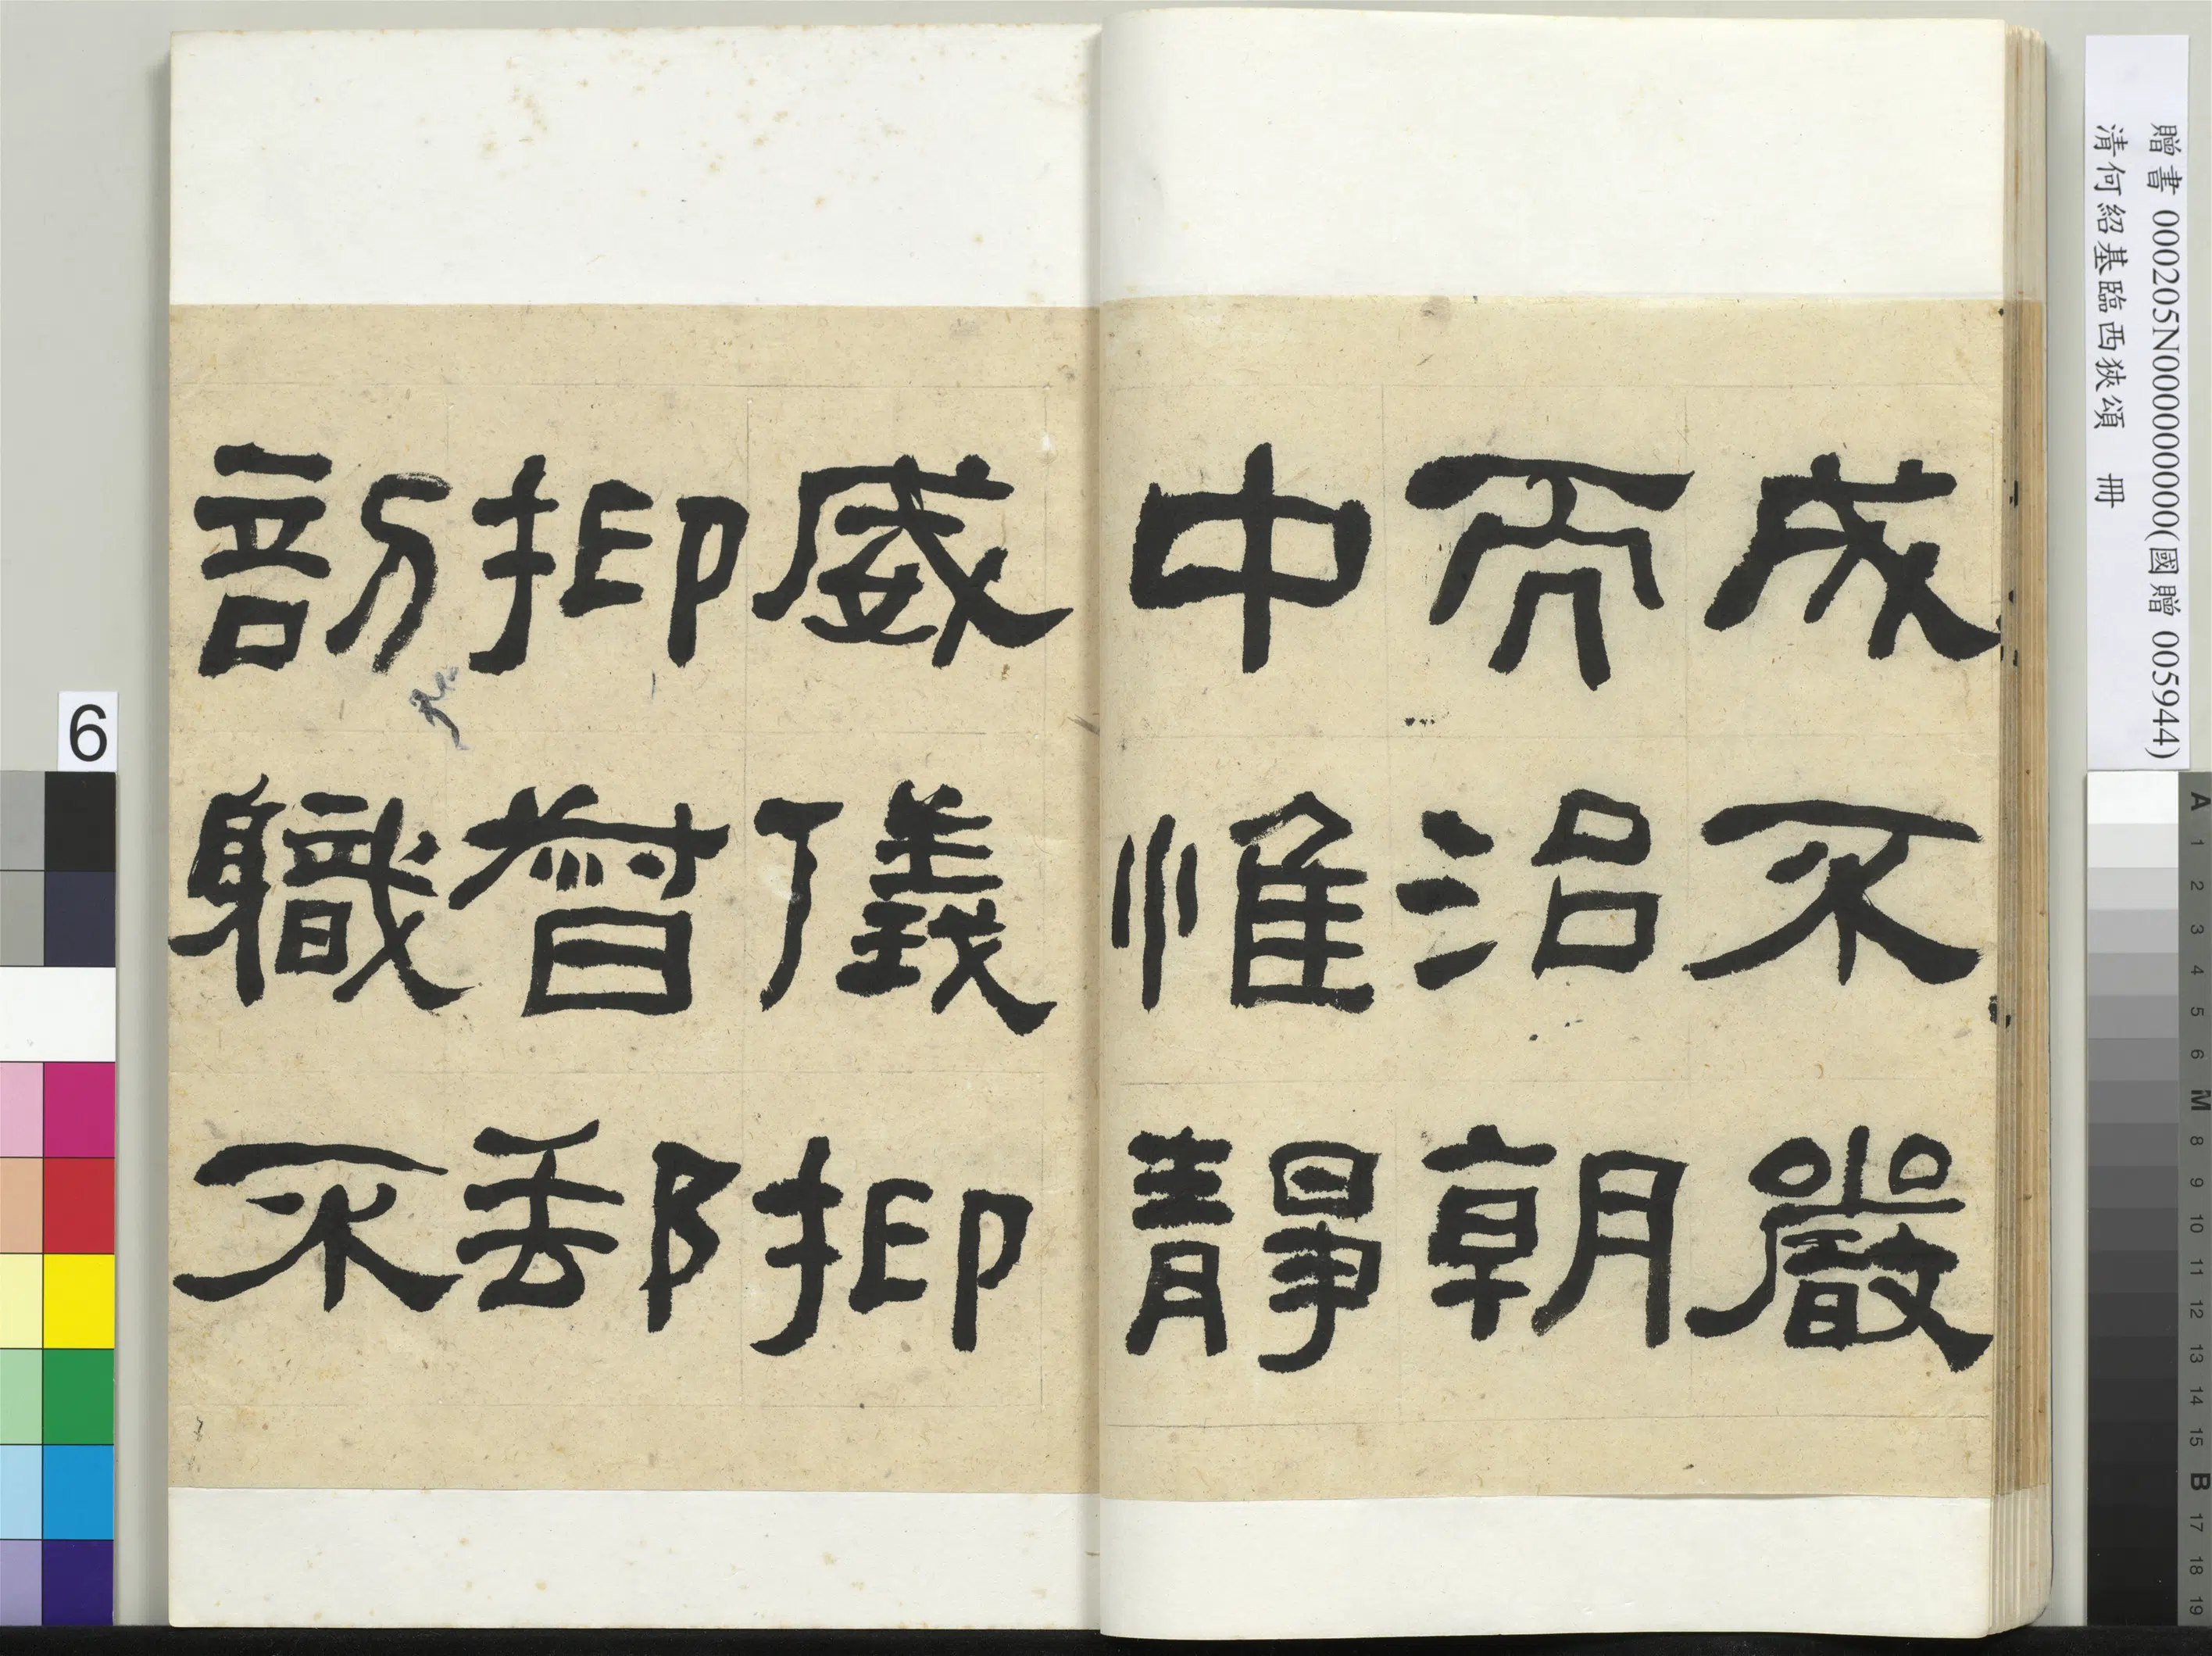 成不嚴
而治朝
中惟靜
威儀抑
抑督郵
部職不
贈書 000205N000000000(國贈 005944)
清何紹基臨西狹頌 冊
6
A 1 2 3 4 5 6 M 8 9 10 11 12 13 14 15 B 17 18 19